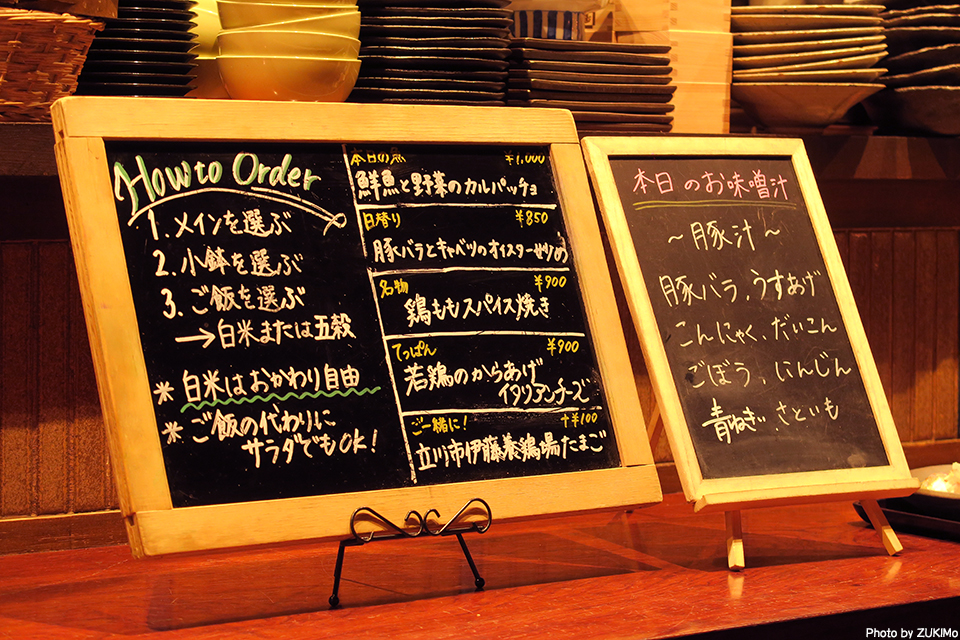 How to Order
1. メインを選ぶ
2. 小鉢を選ぶ
3. ご飯を選ぶ
→白米または五穀
* 白米はおかわり自由
* ご飯の代わりに
サラダでもOK!
本日の魚 ¥1,000
鮮魚と野菜のカルパッチョ
日替り ¥850
豚バラとキャベツのオイスターせいろ
名物 ¥900
鶏ももスパイス焼き
てっぱん ¥900
若鶏のからあげ
イタリアンチーズ
ご一緒に! +¥100
立川市伊藤養鶏場たまご
本日のお味噌汁
~豚汁~
豚バラ、うすあげ
こんにゃく、だいこん
ごぼう、にんじん
青ねぎ、さといも
Photo by ZUKIMo